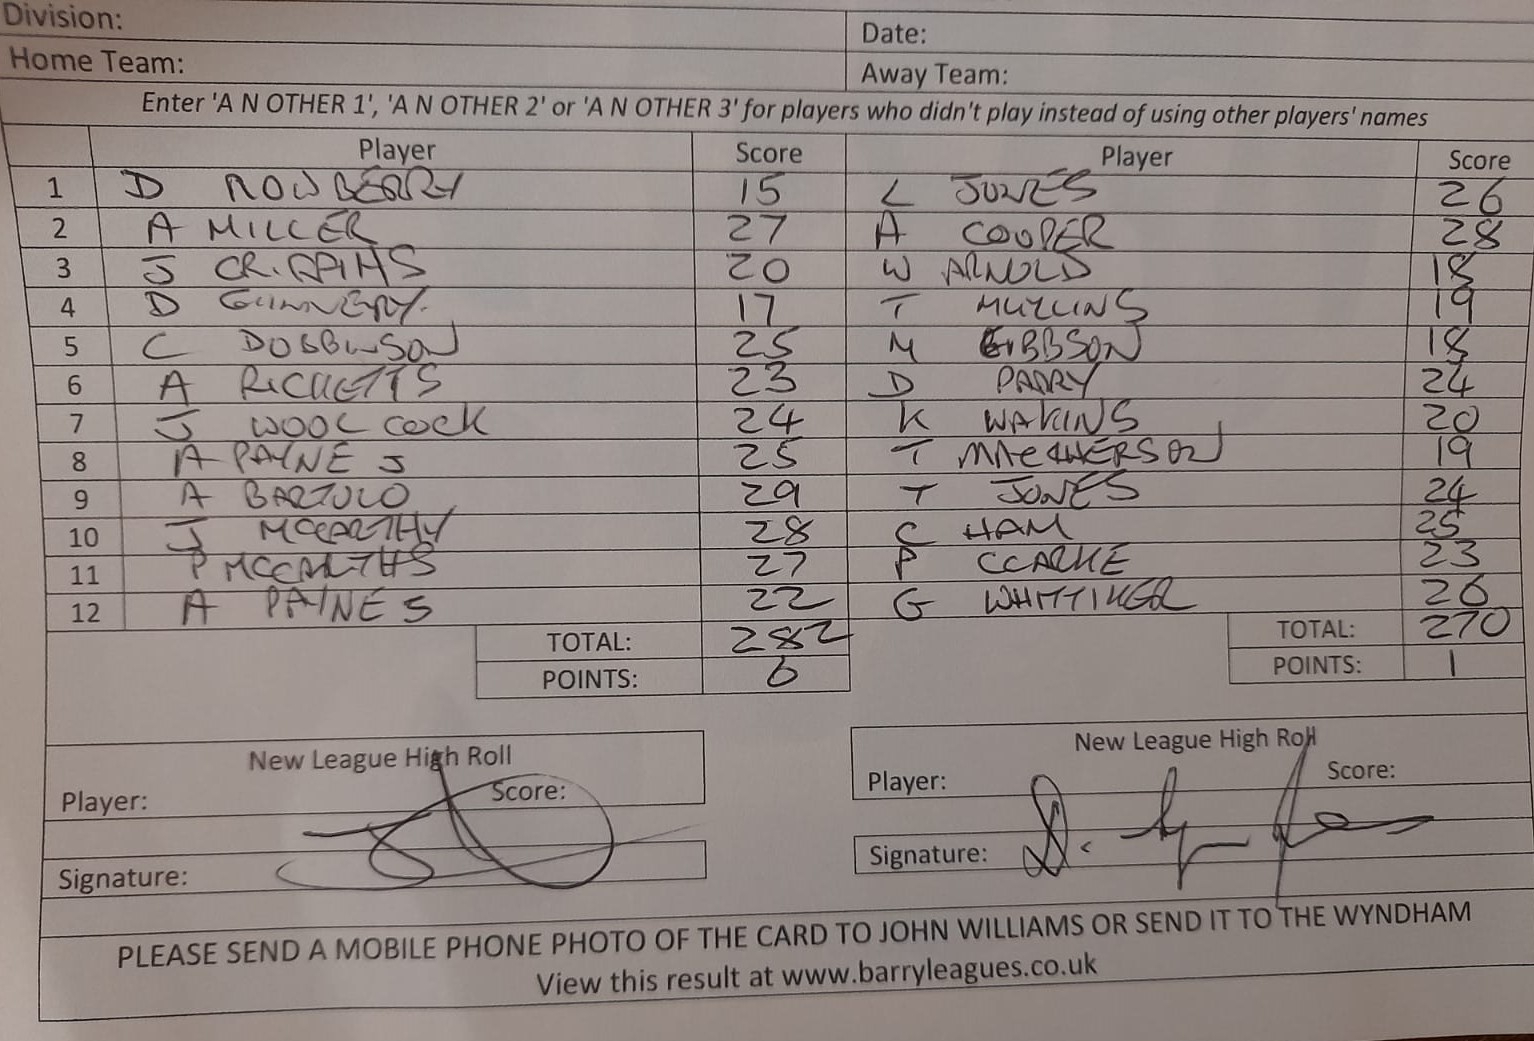 Division: Date:
Home Team: Away Team:
Enter 'A N OTHER 1', 'A N OTHER 2' or 'A N OTHER 3' for players who didn't play instead of using other players' names
Player Score Player Score
1 D NOWBERRY 15 L JONES 26
2 A MILLER 27 A COOPER 28
3 J 20 W ARNOLD 18
4 D 17 T MULLINS 19
5 C DOBBINSON 25 M GIBBSON 18
6 A RICKETTS 23 D PARRY 24
7 J WOOLCOCK 24 K WAKINS 20
8 A PAYNE J 25 T 19
9 A BARTOLO 29 T JONES 24
10 J MCCARTHY 28 C HAM 25
11 P 27 P CLARKE 23
12 A PAYNE S 22 G WHITTIKER 26
TOTAL: 282 TOTAL: 270
POINTS: 6 POINTS: 1
New League High Roll New League High Roll
Player: Score: Player: Score:
Signature: Signature:
PLEASE SEND A MOBILE PHONE PHOTO OF THE CARD TO JOHN WILLIAMS OR SEND IT TO THE WYNDHAM
View this result at www.barryleagues.co.uk